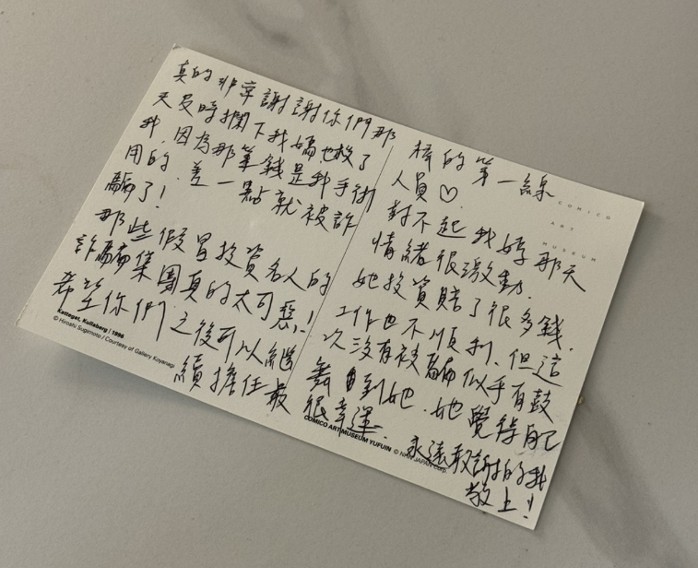 真的非常謝謝你們那
天及時攔下我媽也救了
我.因為那筆錢是我手術
用的.差一點就被詐
騙了!
那些假冒投資名人的
詐騙集團真的太可惡!
希望你們之後可以繼
續擔任最
棒的第一線
人員♡.
對不起我媽那天
情緒很激動.
她投資賠了很多錢.
工作也不順利.但這
次沒有被騙似乎有鼓
舞到她.她覺得自己
很幸運.
永遠敬謝的我
敬上!
COMICO
ART
MUSEUM
Kattegat, Kullaberg / 1996
© Hiroshi Sugimoto / Courtesy of Gallery Koyanagi
COMICO ART MUSEUM YUFUIN © NHN JAPAN Corp.